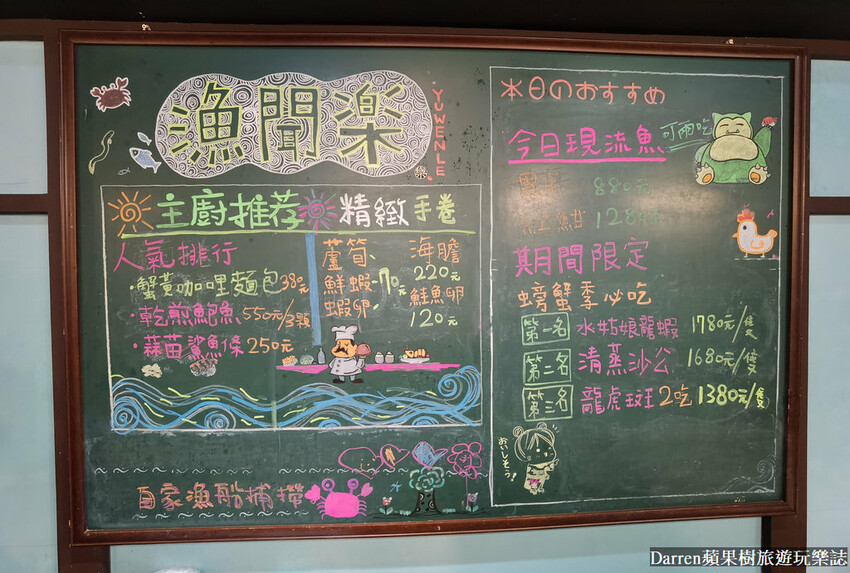 漁聞楽
YUWENLE
樂
主廚推荐 精緻手卷
人氣排行
·蟹黃咖哩麵包 380元
·乾煎鮑魚 550元/3顆
·蒜苗鯊魚條 250元
蘆筍、鮮蝦、蝦卵 70元
海膽
220元
鮭魚卵
120元
自家漁船捕撈
本日のおすすめ
今日現流魚
可兩吃
880元
期間限定
螃蟹季必吃
第一名 水姑娘龍蝦 1780元/隻
第二名 清蒸沙公 1680元/隻
第三名 龍虎斑 2吃 1380元/隻
おいしそう!
Darren蘋果樹旅遊玩樂誌